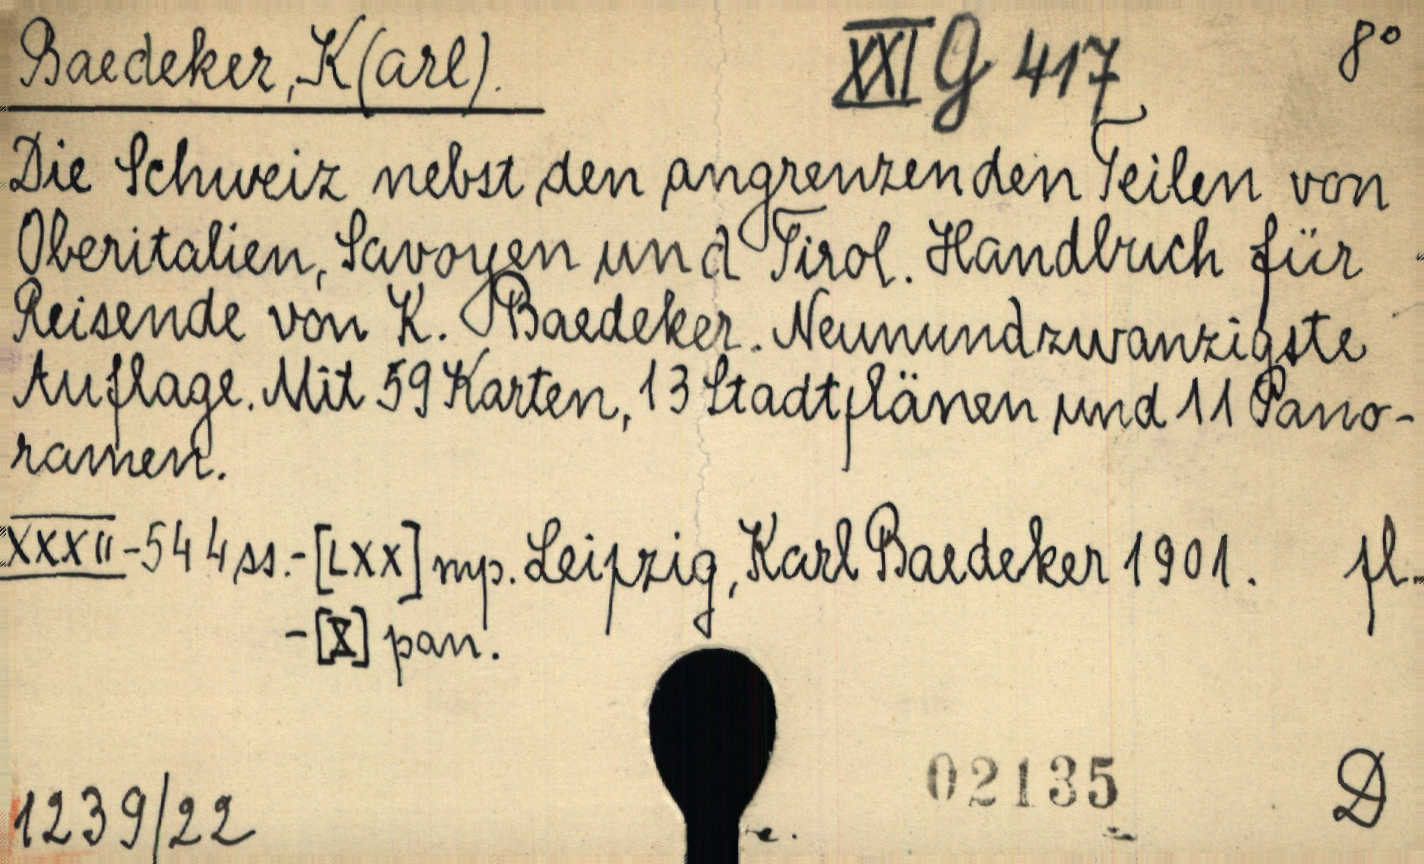 Baedeker, K(arl). XXI G 417 8°
Die Schweiz nebst den angrenzenden Teilen von
Oberitalien, Savoyen und Tirol. Handbuch für
Reisende von K. Baedeker. Neunundzwanzigste
Auflage. Mit 59 Karten, 13 Stadtplänen und 11 Pano-
ramen.
XXXII-544 ss.-[LXX] mp. Leipzig, Karl Baedeker 1901. pł.
-[X] pan.
02135
1239/22 D